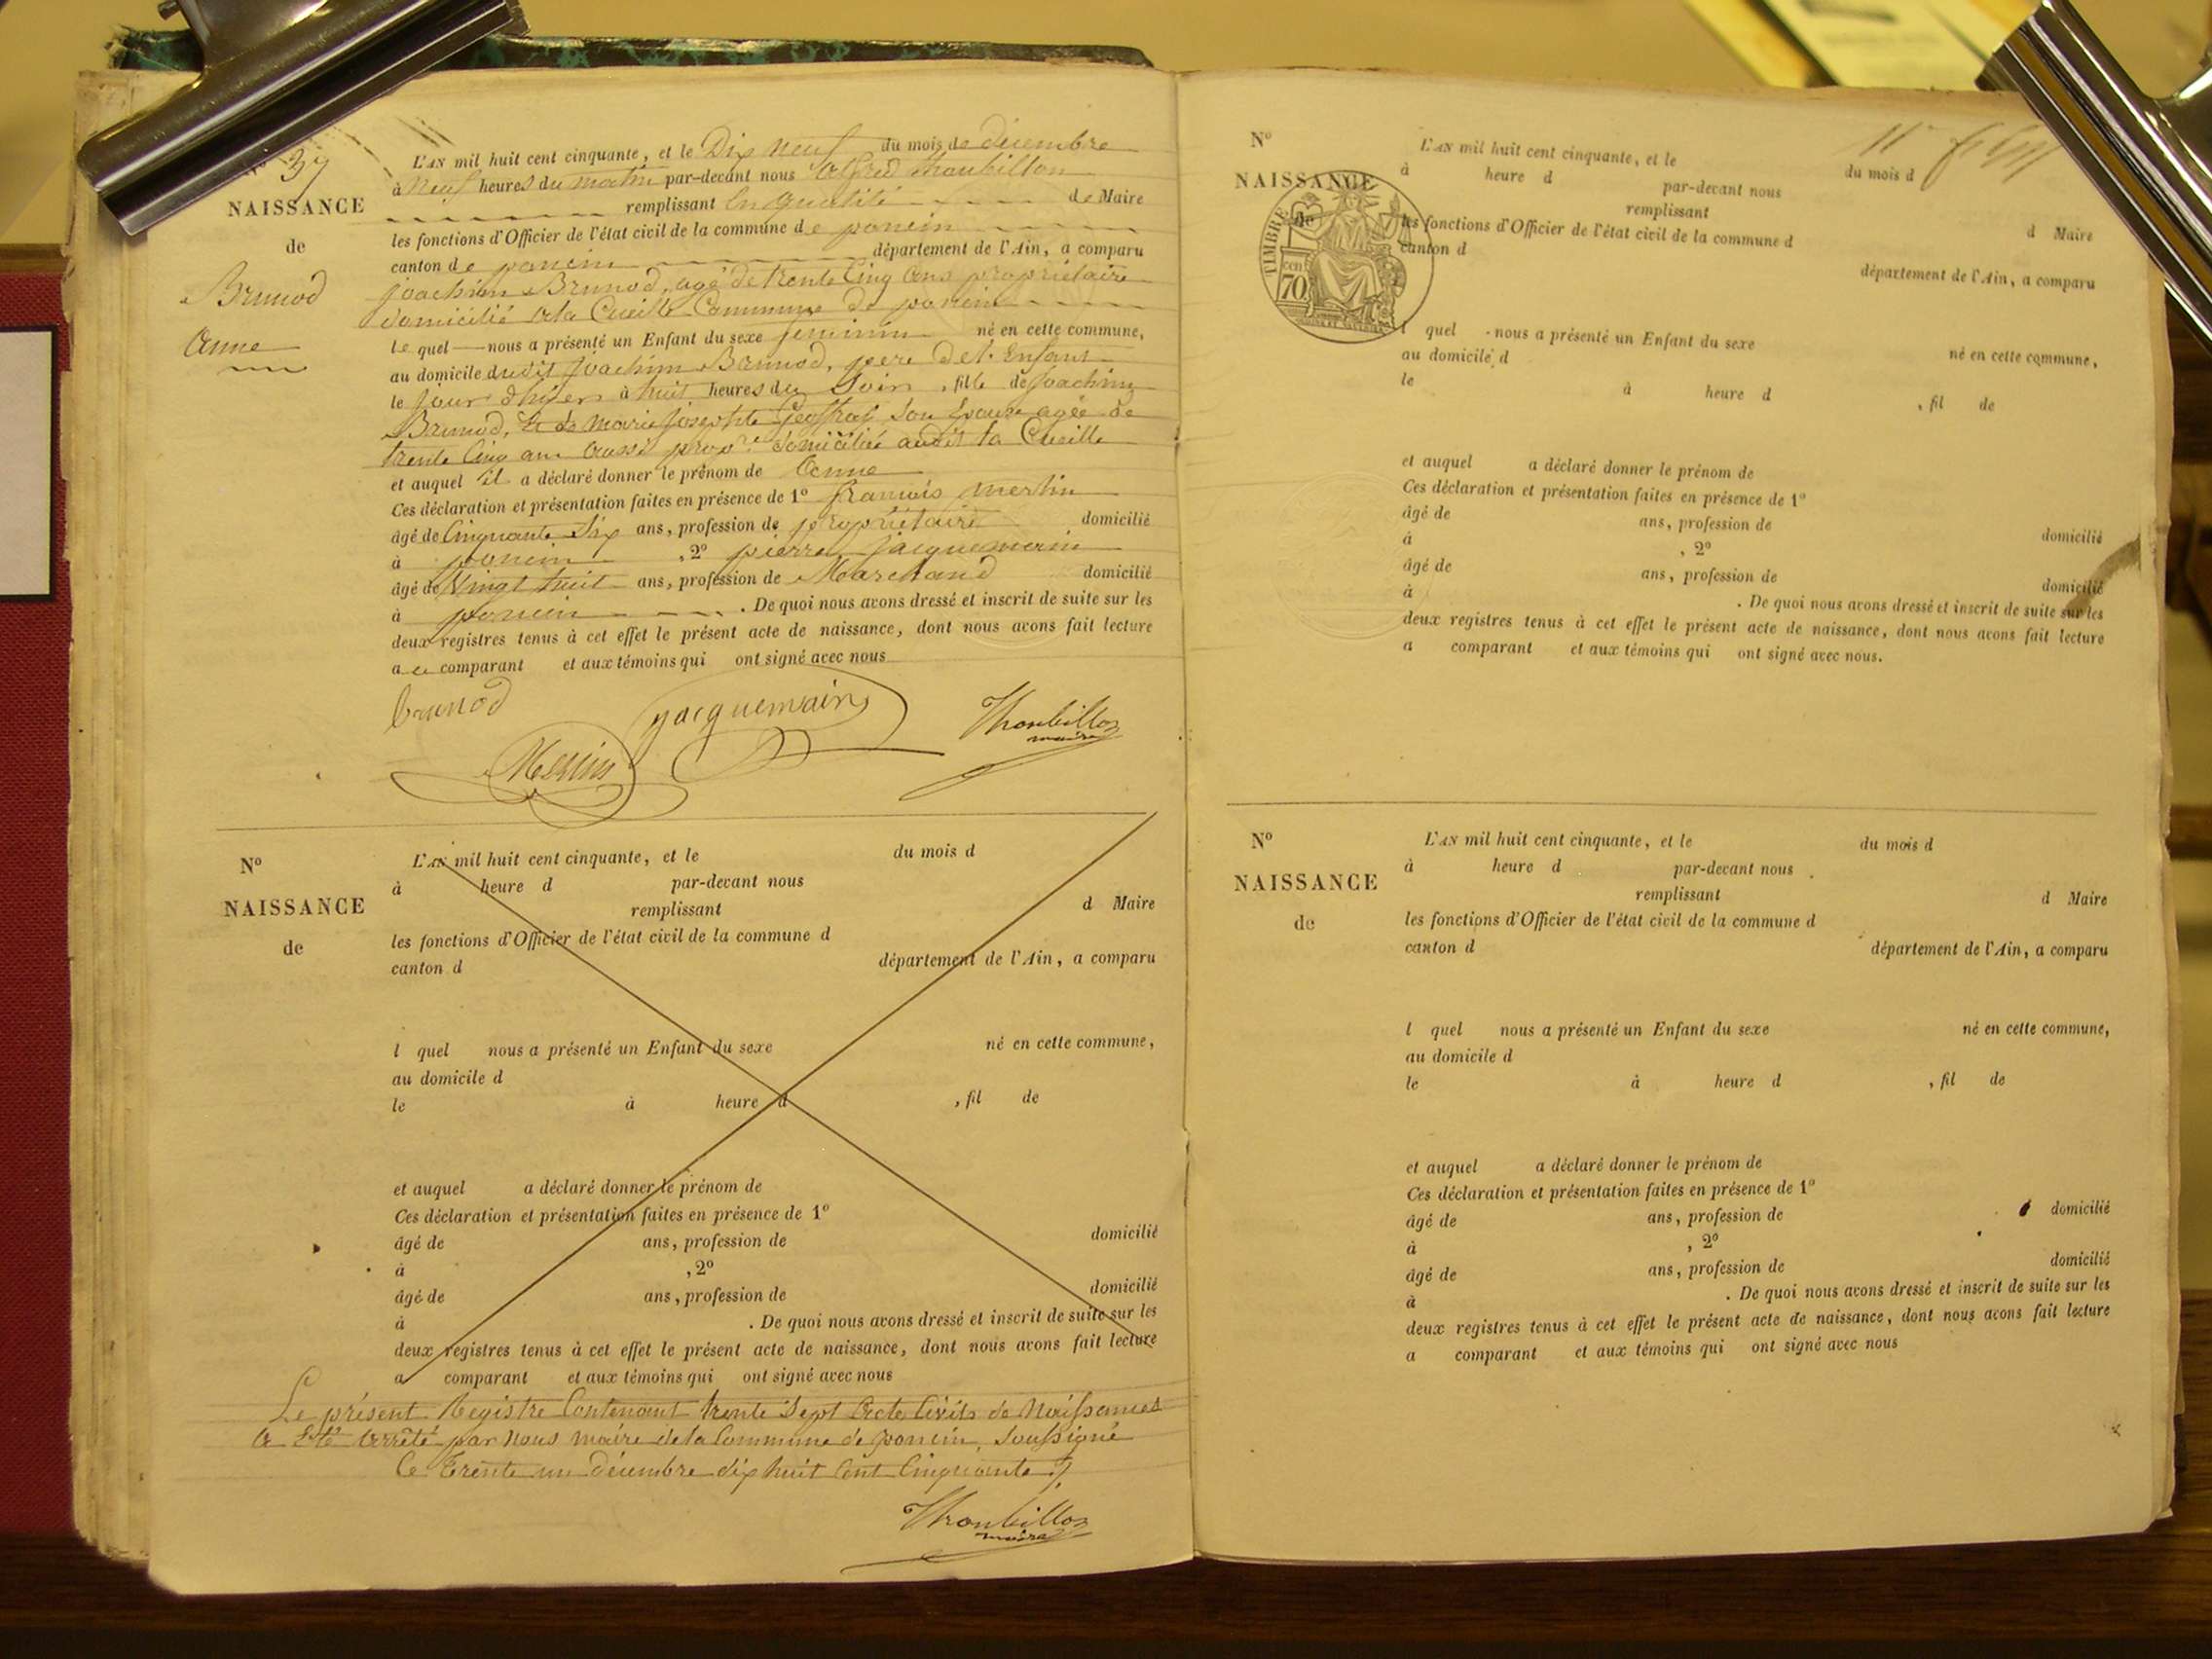 N° 37
NAISSANCE
de
Brunod
Anne
L'AN mil huit cent cinquante, et le Dix neuf du mois de décembre
à Neuf heures du matin par-devant nous alfred Thoubillon
remplissant En qualité de Maire
les fonctions d'Officier de l'état civil de la commune de poncin
canton de poncin département de l'Ain, a comparu
joachim Brunod, agé de trente Cinq ans propriétaire
domicilié a la Cueille Commune de poncin
le quel nous a présenté un Enfant du sexe feminin né en cette commune,
au domicile dudit joachim Brunod, pere de l'Enfant
le jour d'hyer à huit heures du Soir, fille de joachim
Brunod, Et de marie josephte Son Epouse agée de
trente Cinq ans aussi prop.re domiciliée audit la Cueille
et auquel il a déclaré donner le prénom de anne
Ces déclaration et présentation faites en présence de 1° francois merlin
âgé de Cinquante Six ans, profession de propriétaire domicilié
à poncin, 2° pierre jacquemain
âgé de Vingt huit ans, profession de Marchand domicilié
à poncin. De quoi nous avons dressé et inscrit de suite sur les
deux registres tenus à cet effet le présent acte de naissance, dont nous avons fait lecture
a ce comparant et aux témoins qui ont signé avec nous
brunod jacquemain Thoubillon
maire
Merlin
N°
NAISSANCE
de
L'AN mil huit cent cinquante, et le du mois d
à heure d par-devant nous
remplissant d Maire
les fonctions d'Officier de l'état civil de la commune d
canton d département de l'Ain, a comparu
l quel nous a présenté un Enfant du sexe né en cette commune,
au domicile d
le à heure d , fil de
et auquel a déclaré donner le prénom de
Ces déclaration et présentation faites en présence de 1°
âgé de ans, profession de domicilié
à , 2°
âgé de ans, profession de domicilié
à . De quoi nous avons dressé et inscrit de suite sur les
deux registres tenus à cet effet le présent acte de naissance, dont nous avons fait lecture
a comparant et aux témoins qui ont signé avec nous
Le présent Registre Contenant trente Sept Acte Civils de Naissances
a Eté arrêté par Nous maire de la Commune de poncin, Soussigné
Ce trente un décembre dix huit cent Cinquante
Thoubillon
maire
N°
NAISSANCE
de
TIMBRE
cen
70
L'AN mil huit cent cinquante, et le du mois d
à heure d par-devant nous
remplissant d Maire
les fonctions d'Officier de l'état civil de la commune d
canton d département de l'Ain, a comparu
l quel nous a présenté un Enfant du sexe né en cette commune,
au domicile d
le à heure d , fil de
et auquel a déclaré donner le prénom de
Ces déclaration et présentation faites en présence de 1°
âgé de ans, profession de domicilié
à , 2°
âgé de ans, profession de domicilié
à . De quoi nous avons dressé et inscrit de suite sur les
deux registres tenus à cet effet le présent acte de naissance, dont nous avons fait lecture
a comparant et aux témoins qui ont signé avec nous.
N°
NAISSANCE
de
L'AN mil huit cent cinquante, et le du mois d
à heure d par-devant nous
remplissant d Maire
les fonctions d'Officier de l'état civil de la commune d
canton d département de l'Ain, a comparu
l quel nous a présenté un Enfant du sexe né en cette commune,
au domicile d
le à heure d , fil de
et auquel a déclaré donner le prénom de
Ces déclaration et présentation faites en présence de 1°
âgé de ans, profession de domicilié
à , 2°
âgé de ans, profession de domicilié
à . De quoi nous avons dressé et inscrit de suite sur les
deux registres tenus à cet effet le présent acte de naissance, dont nous avons fait lecture
a comparant et aux témoins qui ont signé avec nous